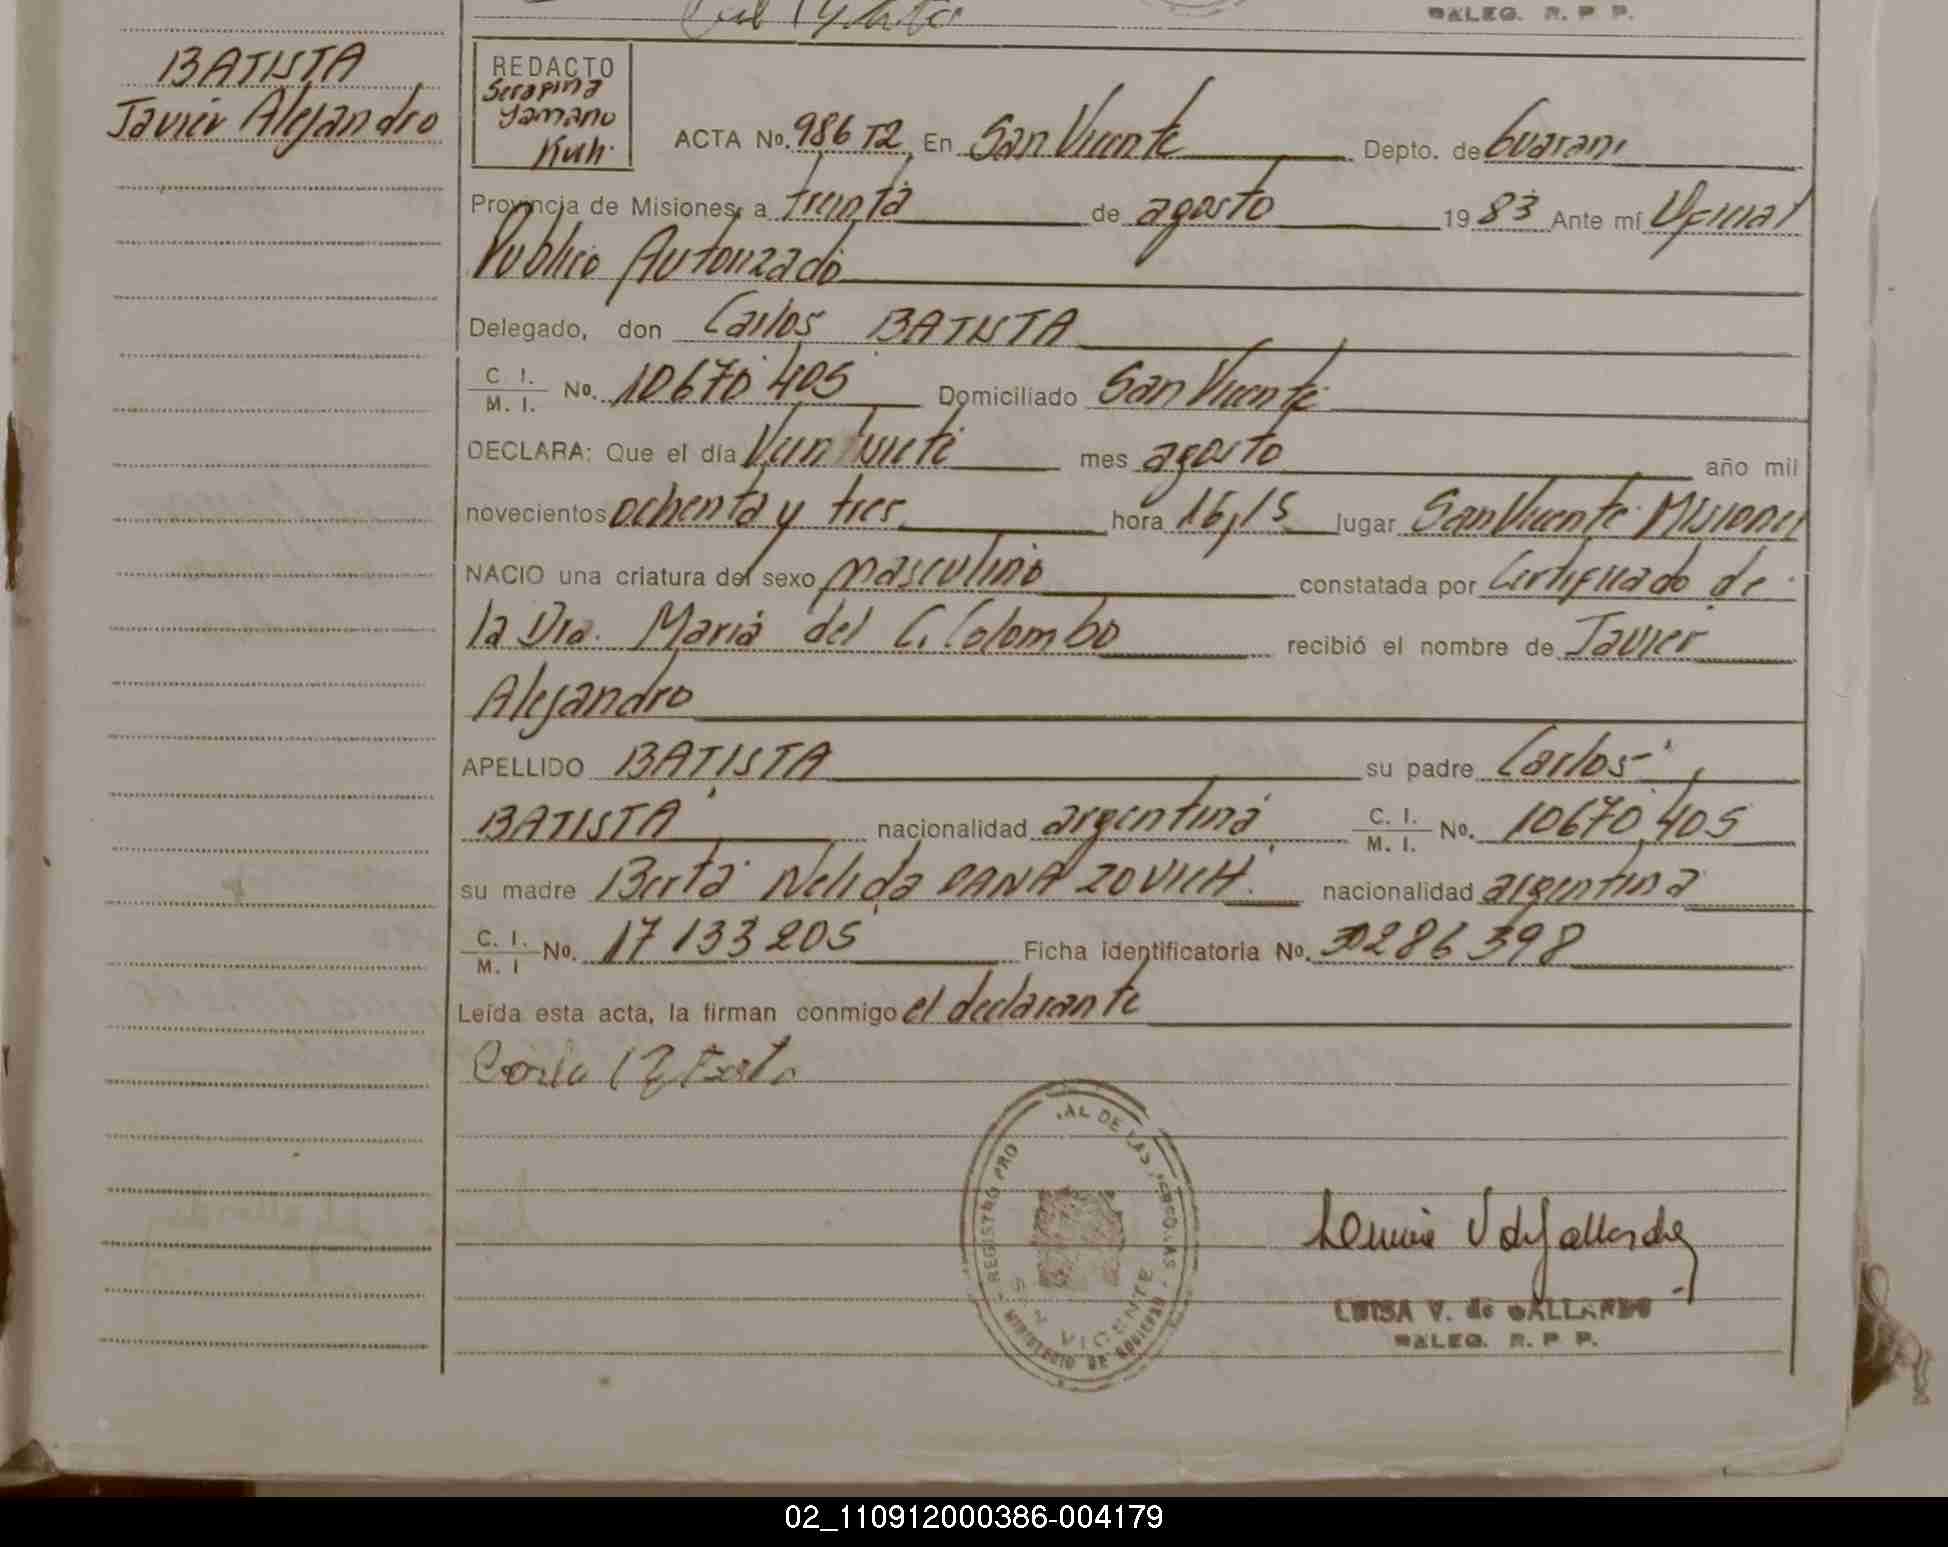 DALEG. R. P. P.
BATISTA
Javier Alejandro
REDACTO
Serapina
Yamano
Kuh.
ACTA No. 986 T2 En San Vicente Depto. de Guarani
Provincia de Misiones, a treinta de agosto 1983 Ante mí Oficial
Publico Autorizado
Delegado, don Carlos BATISTA
C. I.
M. I. No. 10670405 Domiciliado San Vicente
DECLARA: Que el día Veintisiete mes agosto año mil
novecientos ochenta y tres hora 16,15 lugar San Vicente Misiones
NACIO una criatura del sexo masculino constatada por Certificado de
la Dra. Maria del C. Colombo recibió el nombre de Javier
Alejandro
APELLIDO BATISTA su padre Carlos
BATISTA nacionalidad argentina C. I. M. I. No. 10670405
su madre Berta Nelida DANAZOVICH. nacionalidad argentina
C. I. M. I No. 17133205 Ficha identificatoria No. 30286398
Leída esta acta, la firman conmigo el declarante
REGISTRO PRO AL DE LAS PERSONAS
SAN VICENTE
MINISTERIO DE GOBIERNO
LUISA V. de GALLARDO
DALEG. R. P. P.
02_110912000386-004179